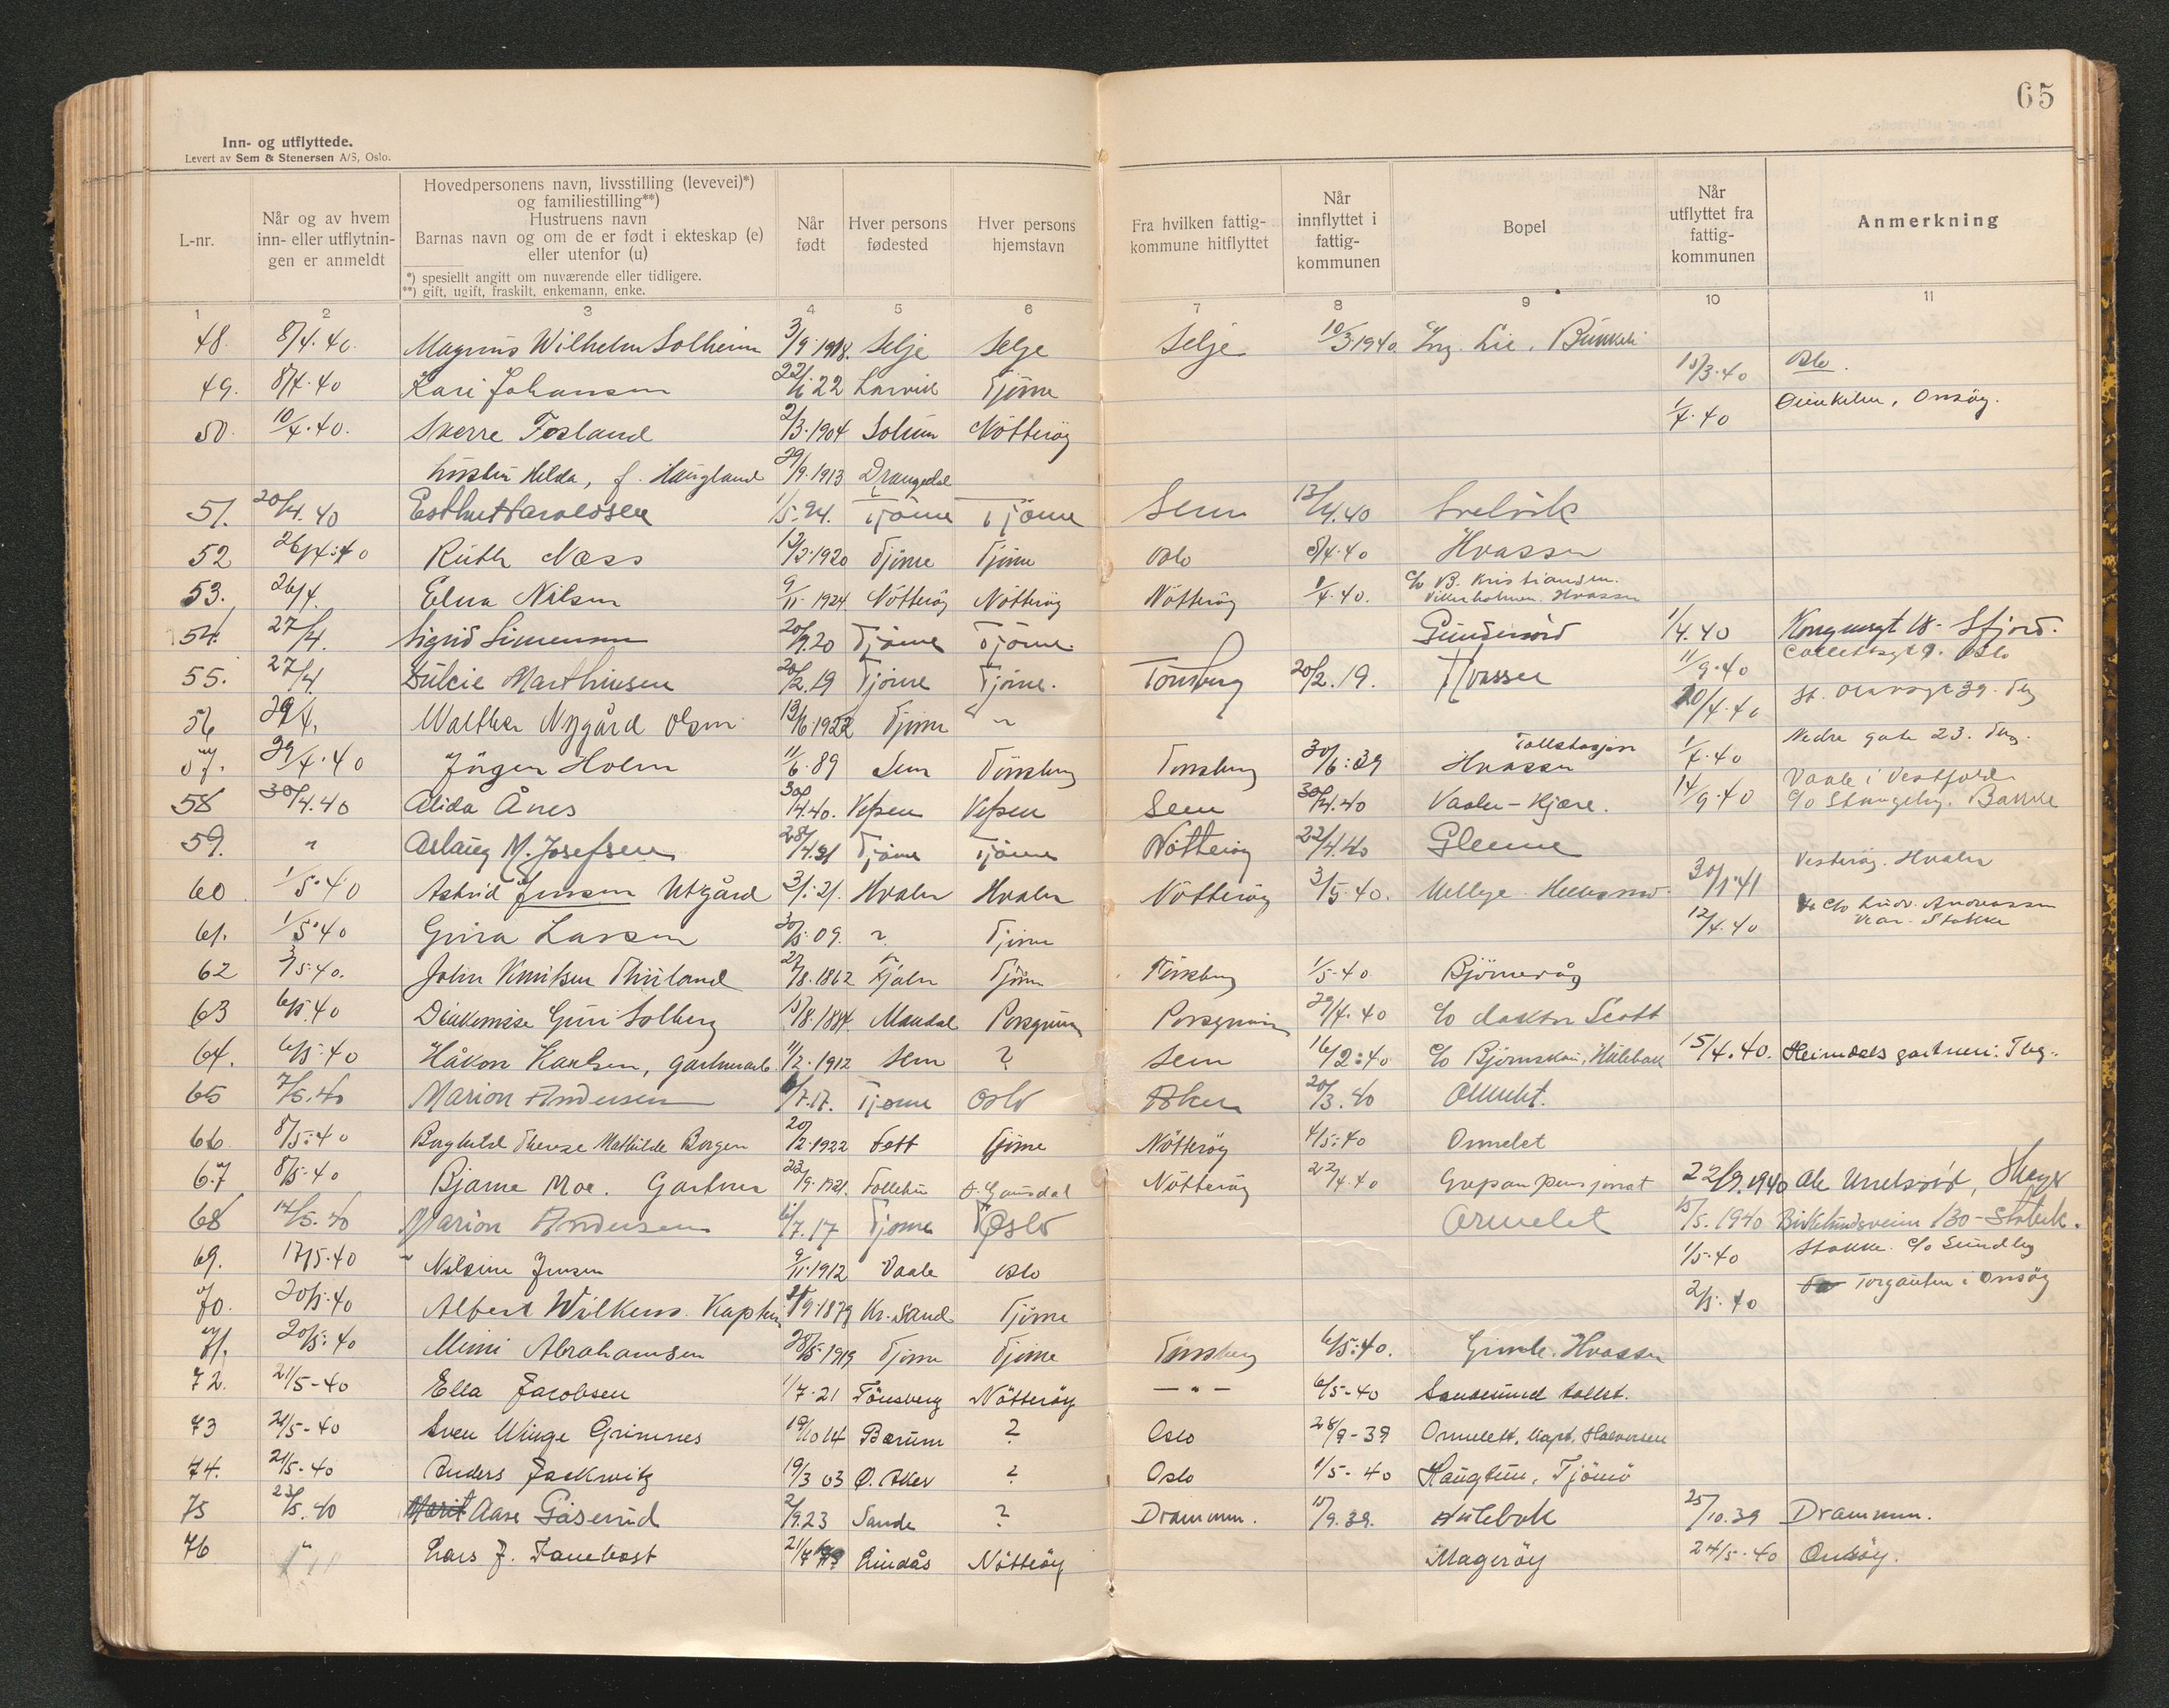 65
Inn- og utflyttede.
Levert av Sem & Stenersen A/S, Oslo.
L-nr.
Når og av hvem
inn- eller utflytnin-
gen er anmeldt
Hovedpersonens navn, livsstilling (levevei)*)
og familiestilling**)
Hustruens navn
Barnas navn og om de er født i ekteskap (e)
eller utenfor (u)
*) spesiellt angitt om nuværende eller tidligere.
**) gift, ugift, fraskilt, enkemann, enke.
Når
født
Hver persons
fødested
Hver persons
hjemstavn
Fra hvilken fattig-
kommune hitflyttet
Når
innflyttet i
fattig-
kommunen
Bopel
Når
utflyttet fra
fattig-
kommunen
Anmerkning
1 2 3 4 5 6 7 8 9 10 11
48. 8/4.40 Magnus Wilhelm Solheim 3/9.1918. Selje Selje Selje 10/3 1940 Ing. Lie.
49. 8/4.40 Kari Johansen 22/1.22 Larvik Tjöme 15/3.40 Oslo.
50. 10/4.40. Sverre Fosland 2/3.1904 Solum Nötteröy 1/4.40 Onsöy.
hustru Helda, f. Haugland 29/9.1913 Drangedal
51. 20/4.40 Esther Haraldsen 1/5.24. Tjöme Tjöme Sem 13/4.40 Svelvik
52 26/4.40 Ruth Næss 12/2.1920 Tjöme Tjöme Oslo 8/4.40 Hvasser
53. 26/4. Elna Nilsen 9/11.1924 Nötteröy Nötteröy Nötteröy 1/4.40. c/o B. Kristiansen. Hvasser
54. 27/4. Sigrid Simensen 20/9.20 Tjöme Tjöme. 1/4.40 Kongensgt 18 - Sfjord.
55. 27/4. Dulcie Marthinsen 20/2.19 Tjöme Tjöme. Tönsberg 20/2.19. Hvasser 11/9.40 Oslo
56 29/4. Walther Nygård Olsen 13/6.1922 Tjöme " 20/4.40 St. Olavsgt 39. Tbg
57. 29/4.40 Jörgen Holm 11/6.89 Sem Tönsberg Tönsberg 30/6.39 Tollstasjon Hvasser 1/4.40 Nedre gate 23. Tbg.
58 30/4.40 Alida Ånes 30/4.40. Vefsen Vefsen Sem 30/4.40 Vasler - Kjære. 14/9.40 Vaale i Vestfold c/o Stangeby.
59. " Aslaug M. Josefsen 28/4.21 Tjöme Tjöme Nötteröy 22/4.40 Glenne
60 1/5.40 Astrid Jensen Utgård 3/1.21. Hvaler Hvaler Nötteröy 3/5.40. 30/1.41 Vesteröy. Hvaler
61. 1/5.40 Gina Larsen 30/5.09. ". Tjöme 12/4.40 c/o Ludv. Andreassen Stokke
62 3/5.40. John Knutsen Thuland 27/8.1862 Tjöme Tönsberg 1/5-40 Björnevåg
63 6/5.40 Diakonisse Guri Solberg 17/8.1884. Mandal Porsgrunn Porsgrunn 29/4.40 c/o doktor Scott
64. 6/5.40 Håkon Karlsen, gartnerarb. 11/2.1912 Sem ? Sem 16/2.40 c/o Björnskau, Hulebak 15/4.40. Heimdals gartneri. Tbg..
65 7/5.40 Marion Andersen 6/7.17. Tjöme Oslo Aker 20/3.40 Ormelet.
66 8/5.40 Borghild Therese Mathilde Borgen 20/2.1922 Fett Tjöme Nötteröy 4/5.40 Ormelet
67 8/5.40 Bjarne Moe. Gartner 23/9.1921. Follebu Ö. Gausdal Nötteröy 22/4.40 Grepan pensjonat 22/9.1940
68 14/5.40 Marion Andersen 6/7.17 Tjöme Oslo Ormelet 15/5.1940 Birkelundsveien 130 - Stabek.
69. 17/5.40 Nilsine Jensen 9/11.1912 Vaale Oslo 1/5.40 Stokke. c/o Sundby
70. 20/5.40 Albert Wilkens. Kaptein 21/9.1879 Kr.Sand Tjöme 2/5.40 Torgauten i Onsöy
71. 20/5.40 Mimi Abrahamsen 28/5 1919 Tjöme Tjöme Tönsberg 6/5.40. Grimle. Hvasser
72. 21/5-40 Ella Jacobsen 1/7.21 Tönsberg Nötteröy - " - 6/5-40 Sandösund tollst.
73 21/5-40 Sven Winge Grimnes 19/10 14 Bærum ? Oslo 28/9-39 Ormelett, Kapt. Halvorsen
74. 21/5.40 Anders Jackwitz 19/3 03 Ö. Aker ? Oslo 1/5-40 Haugtun, Tjömö
75 23/5.40 Marit Aase Gåserud 2/9.23 Sande ? Drammen. 15/9.39. Hulebak 25/10.39 Drammen.
76 " Lars J. Tanebost 21/4 Lindås Nötteröy Mageröy 24/5.40 Onsöy.